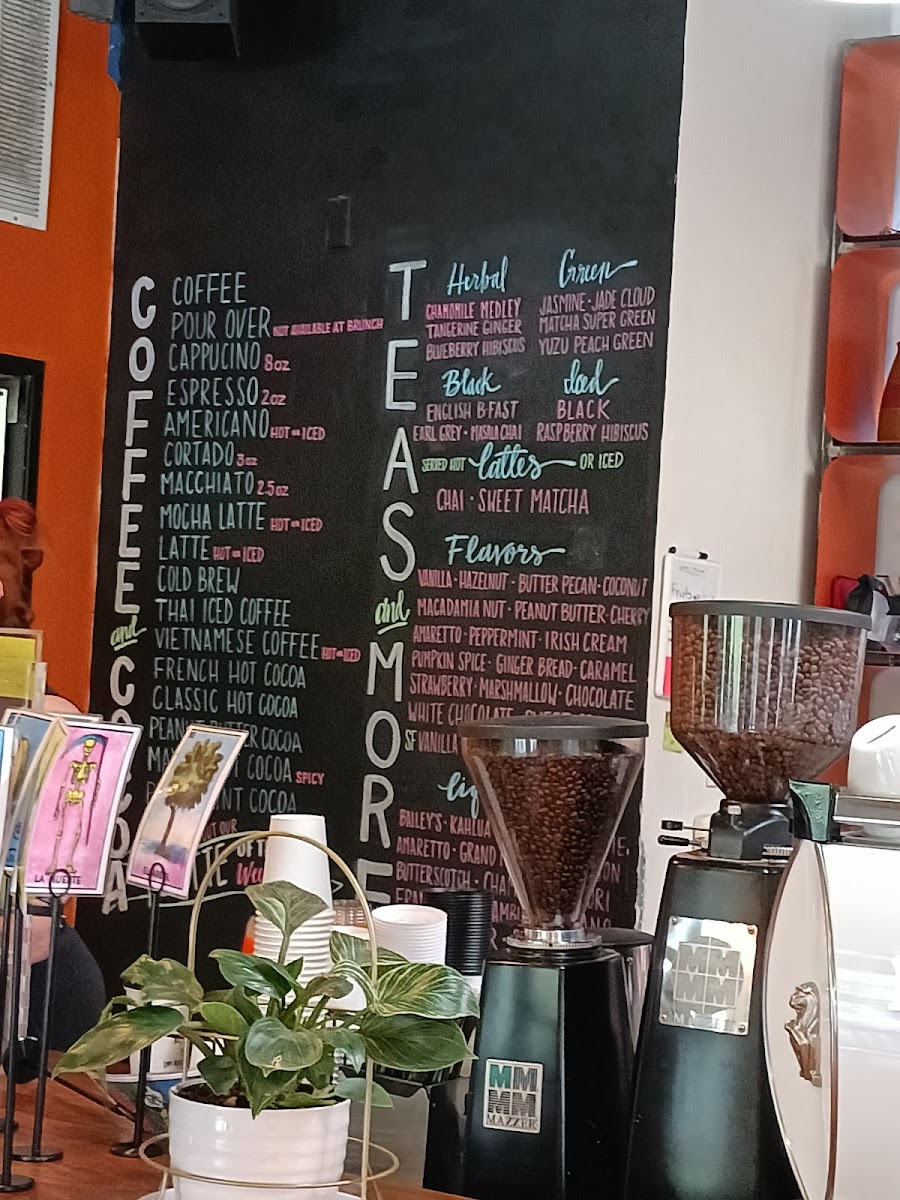 COFFEE and COCOA
COFFEE
POUR OVER NOT AVAILABLE AT BRUNCH
CAPPUCINO 8oz
ESPRESSO 2oz
AMERICANO HOT OR ICED
CORTADO 3oz
MACCHIATO 2.5oz
MOCHA LATTE HOT OR ICED
LATTE HOT OR ICED
COLD BREW
THAI ICED COFFEE
VIETNAMESE COFFEE HOT OR ICED
FRENCH HOT COCOA
CLASSIC HOT COCOA
PEANUT BUTTER COCOA
COCOA SPICY
COCOA
OUR
TEAS and MORE
Herbal
CHAMOMILE MEDLEY
TANGERINE GINGER
BLUEBERRY HIBISCUS
Green
JASMINE · JADE CLOUD
MATCHA SUPER GREEN
YUZU PEACH GREEN
Black
ENGLISH B-FAST
EARL GREY · MASALA CHAI
Iced
BLACK
RASPBERRY HIBISCUS
SERVED HOT lattes OR ICED
CHAI · SWEET MATCHA
Flavors
VANILLA · HAZELNUT · BUTTER PECAN · COCONUT
MACADAMIA NUT · PEANUT BUTTER · CHERRY
AMARETTO · PEPPERMINT · IRISH CREAM
PUMPKIN SPICE · GINGER BREAD · CARAMEL
STRAWBERRY · MARSHMALLOW · CHOCOLATE
WHITE CHOCOLATE
SF VANILLA
BAILEY'S · KAHLUA
AMARETTO · GRAND
BUTTERSCOTCH
MAZZER
MAZZER